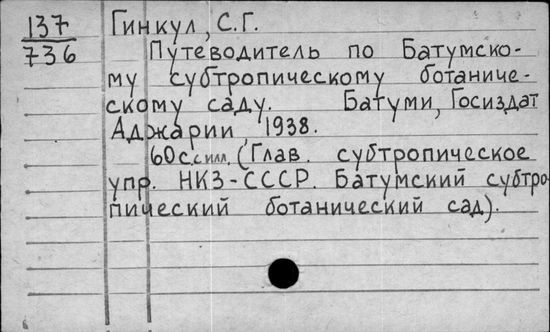 137
736
Гинкул, С.Г.
Путеводитель по Батумско-
му субтропическому ботаниче-
скому саду. Батуми, Госиздат
Аджарии, 1938.
60с.силл. (Глав. субтропическое
упр. НКЗ-СССР. Батумский субтро-
пический ботанический сад).